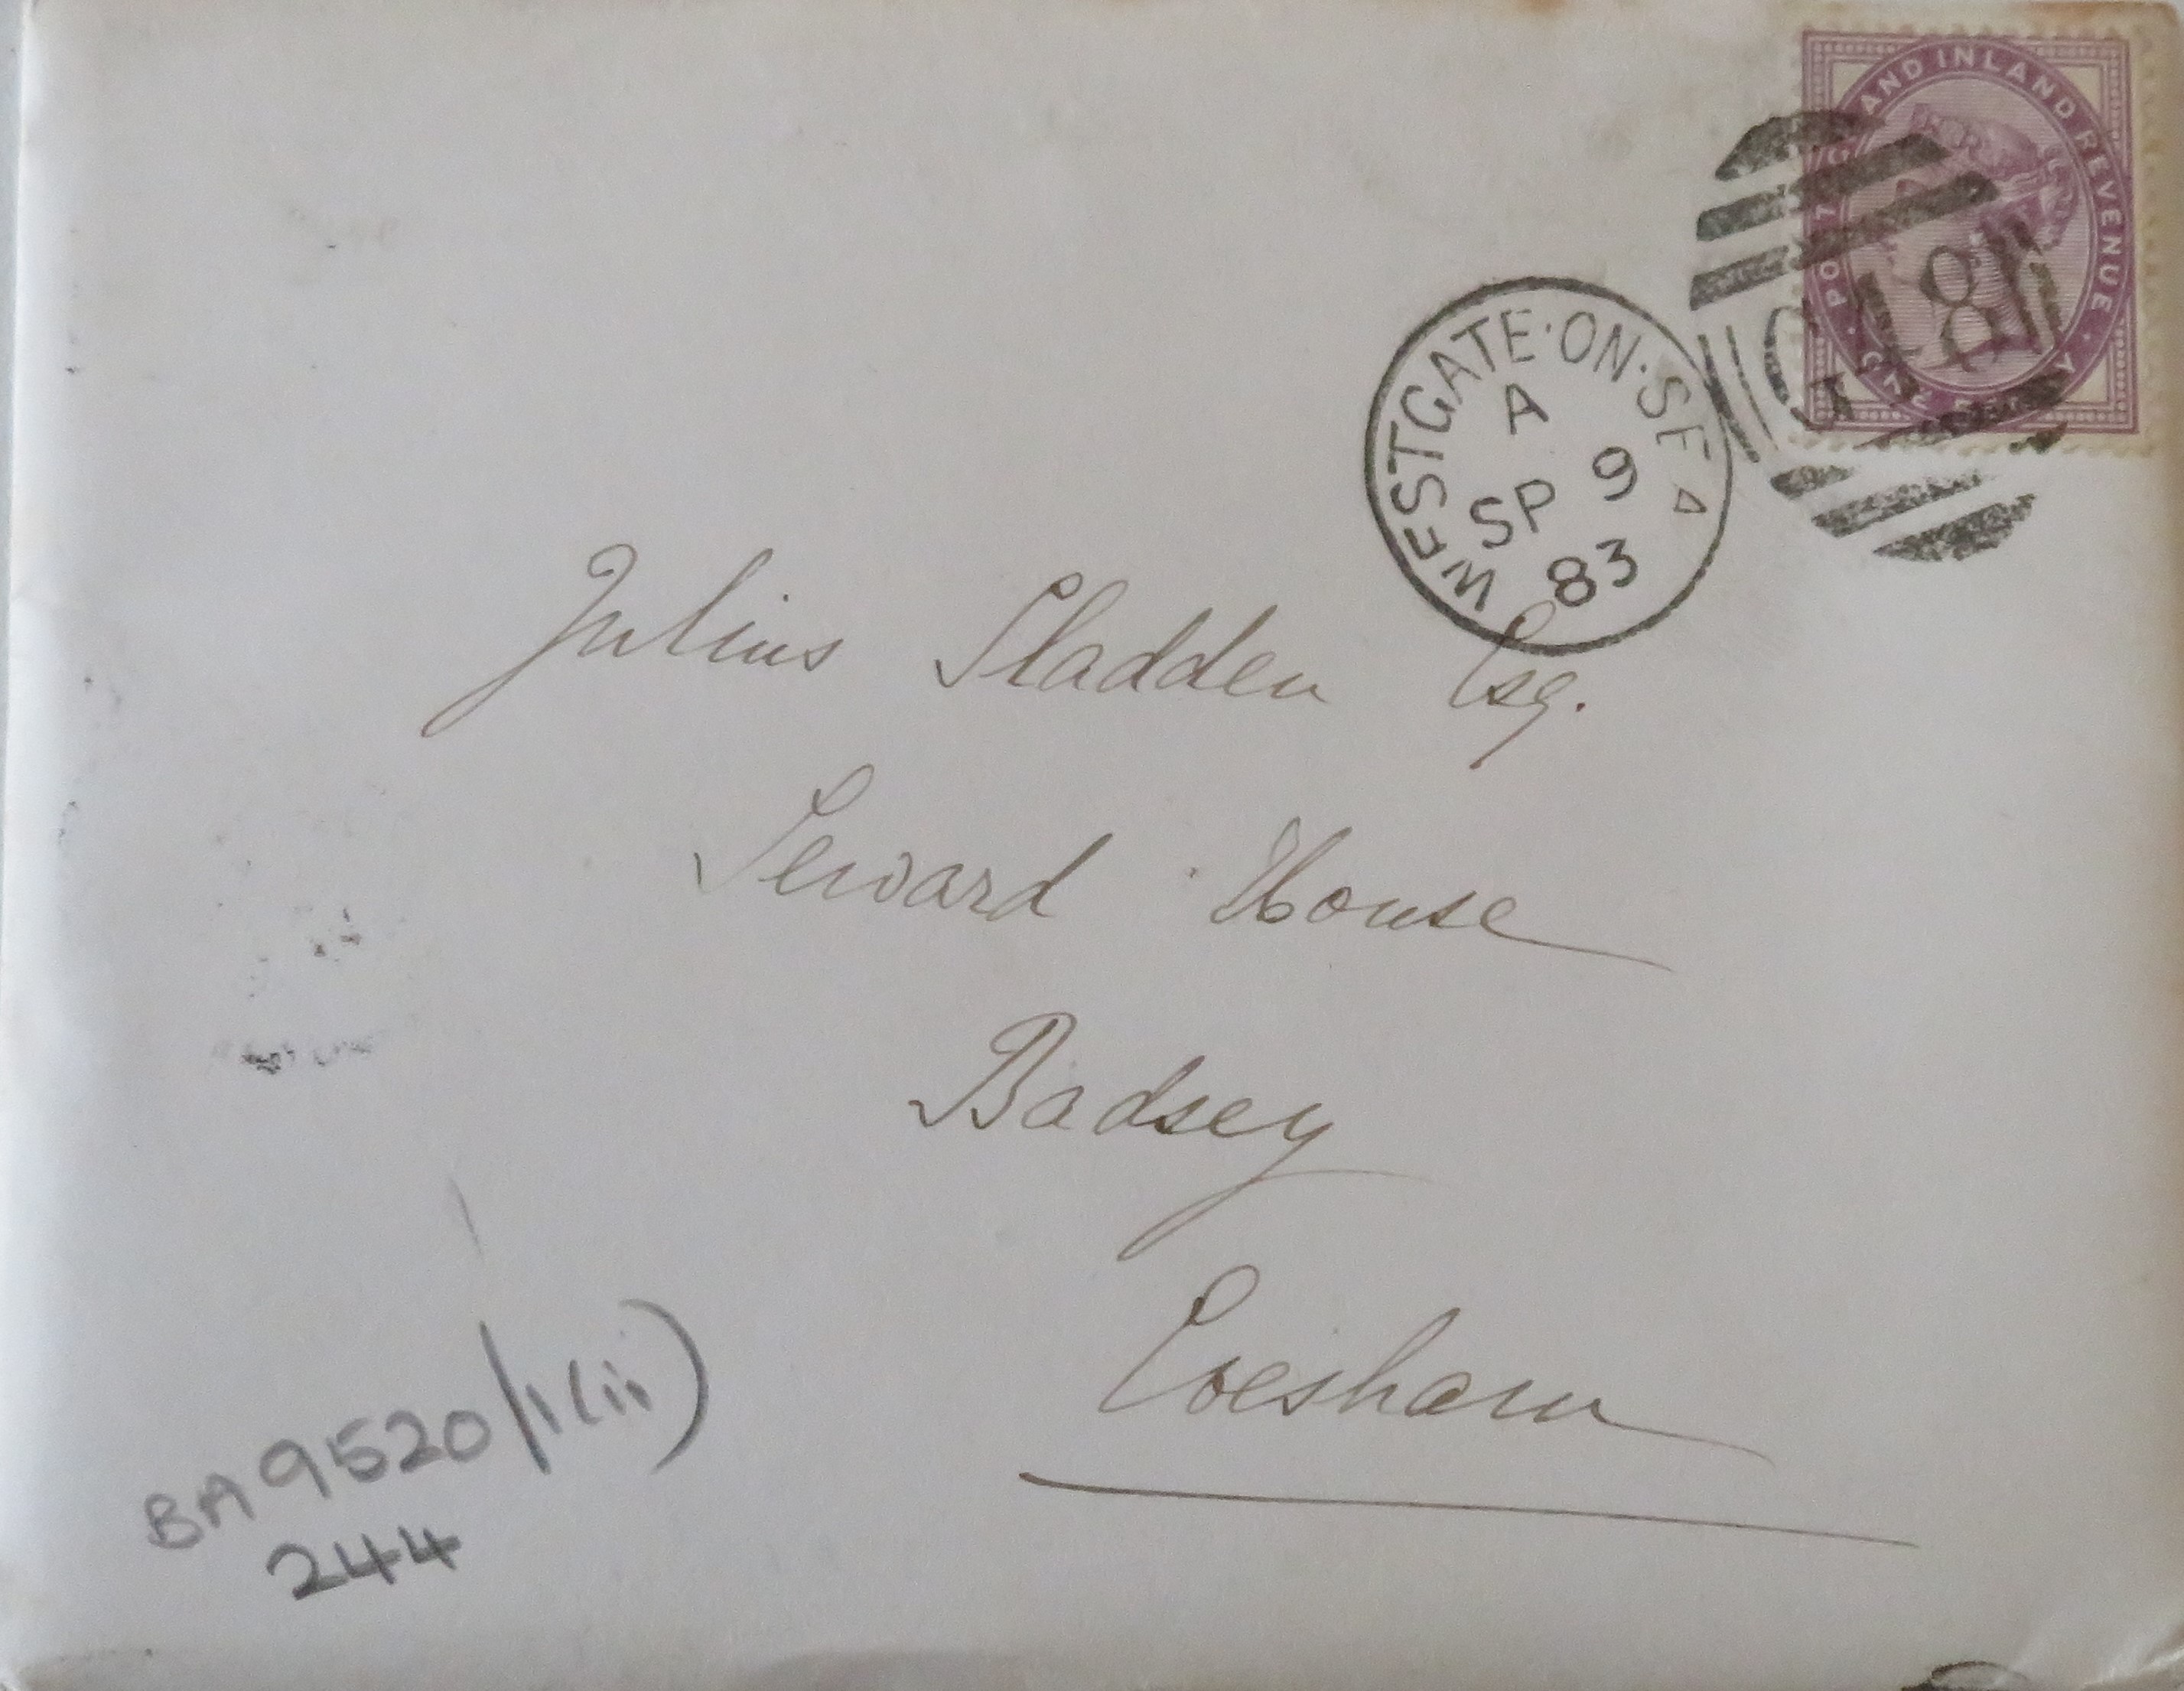 POSTAGE AND INLAND REVENUE
ONE PENNY
WESTGATE·ON·SEA
A
SP 9
83
Julius Sladden Esq.
Seward House
Badsey
Evesham
BA9520/1(ii)
244